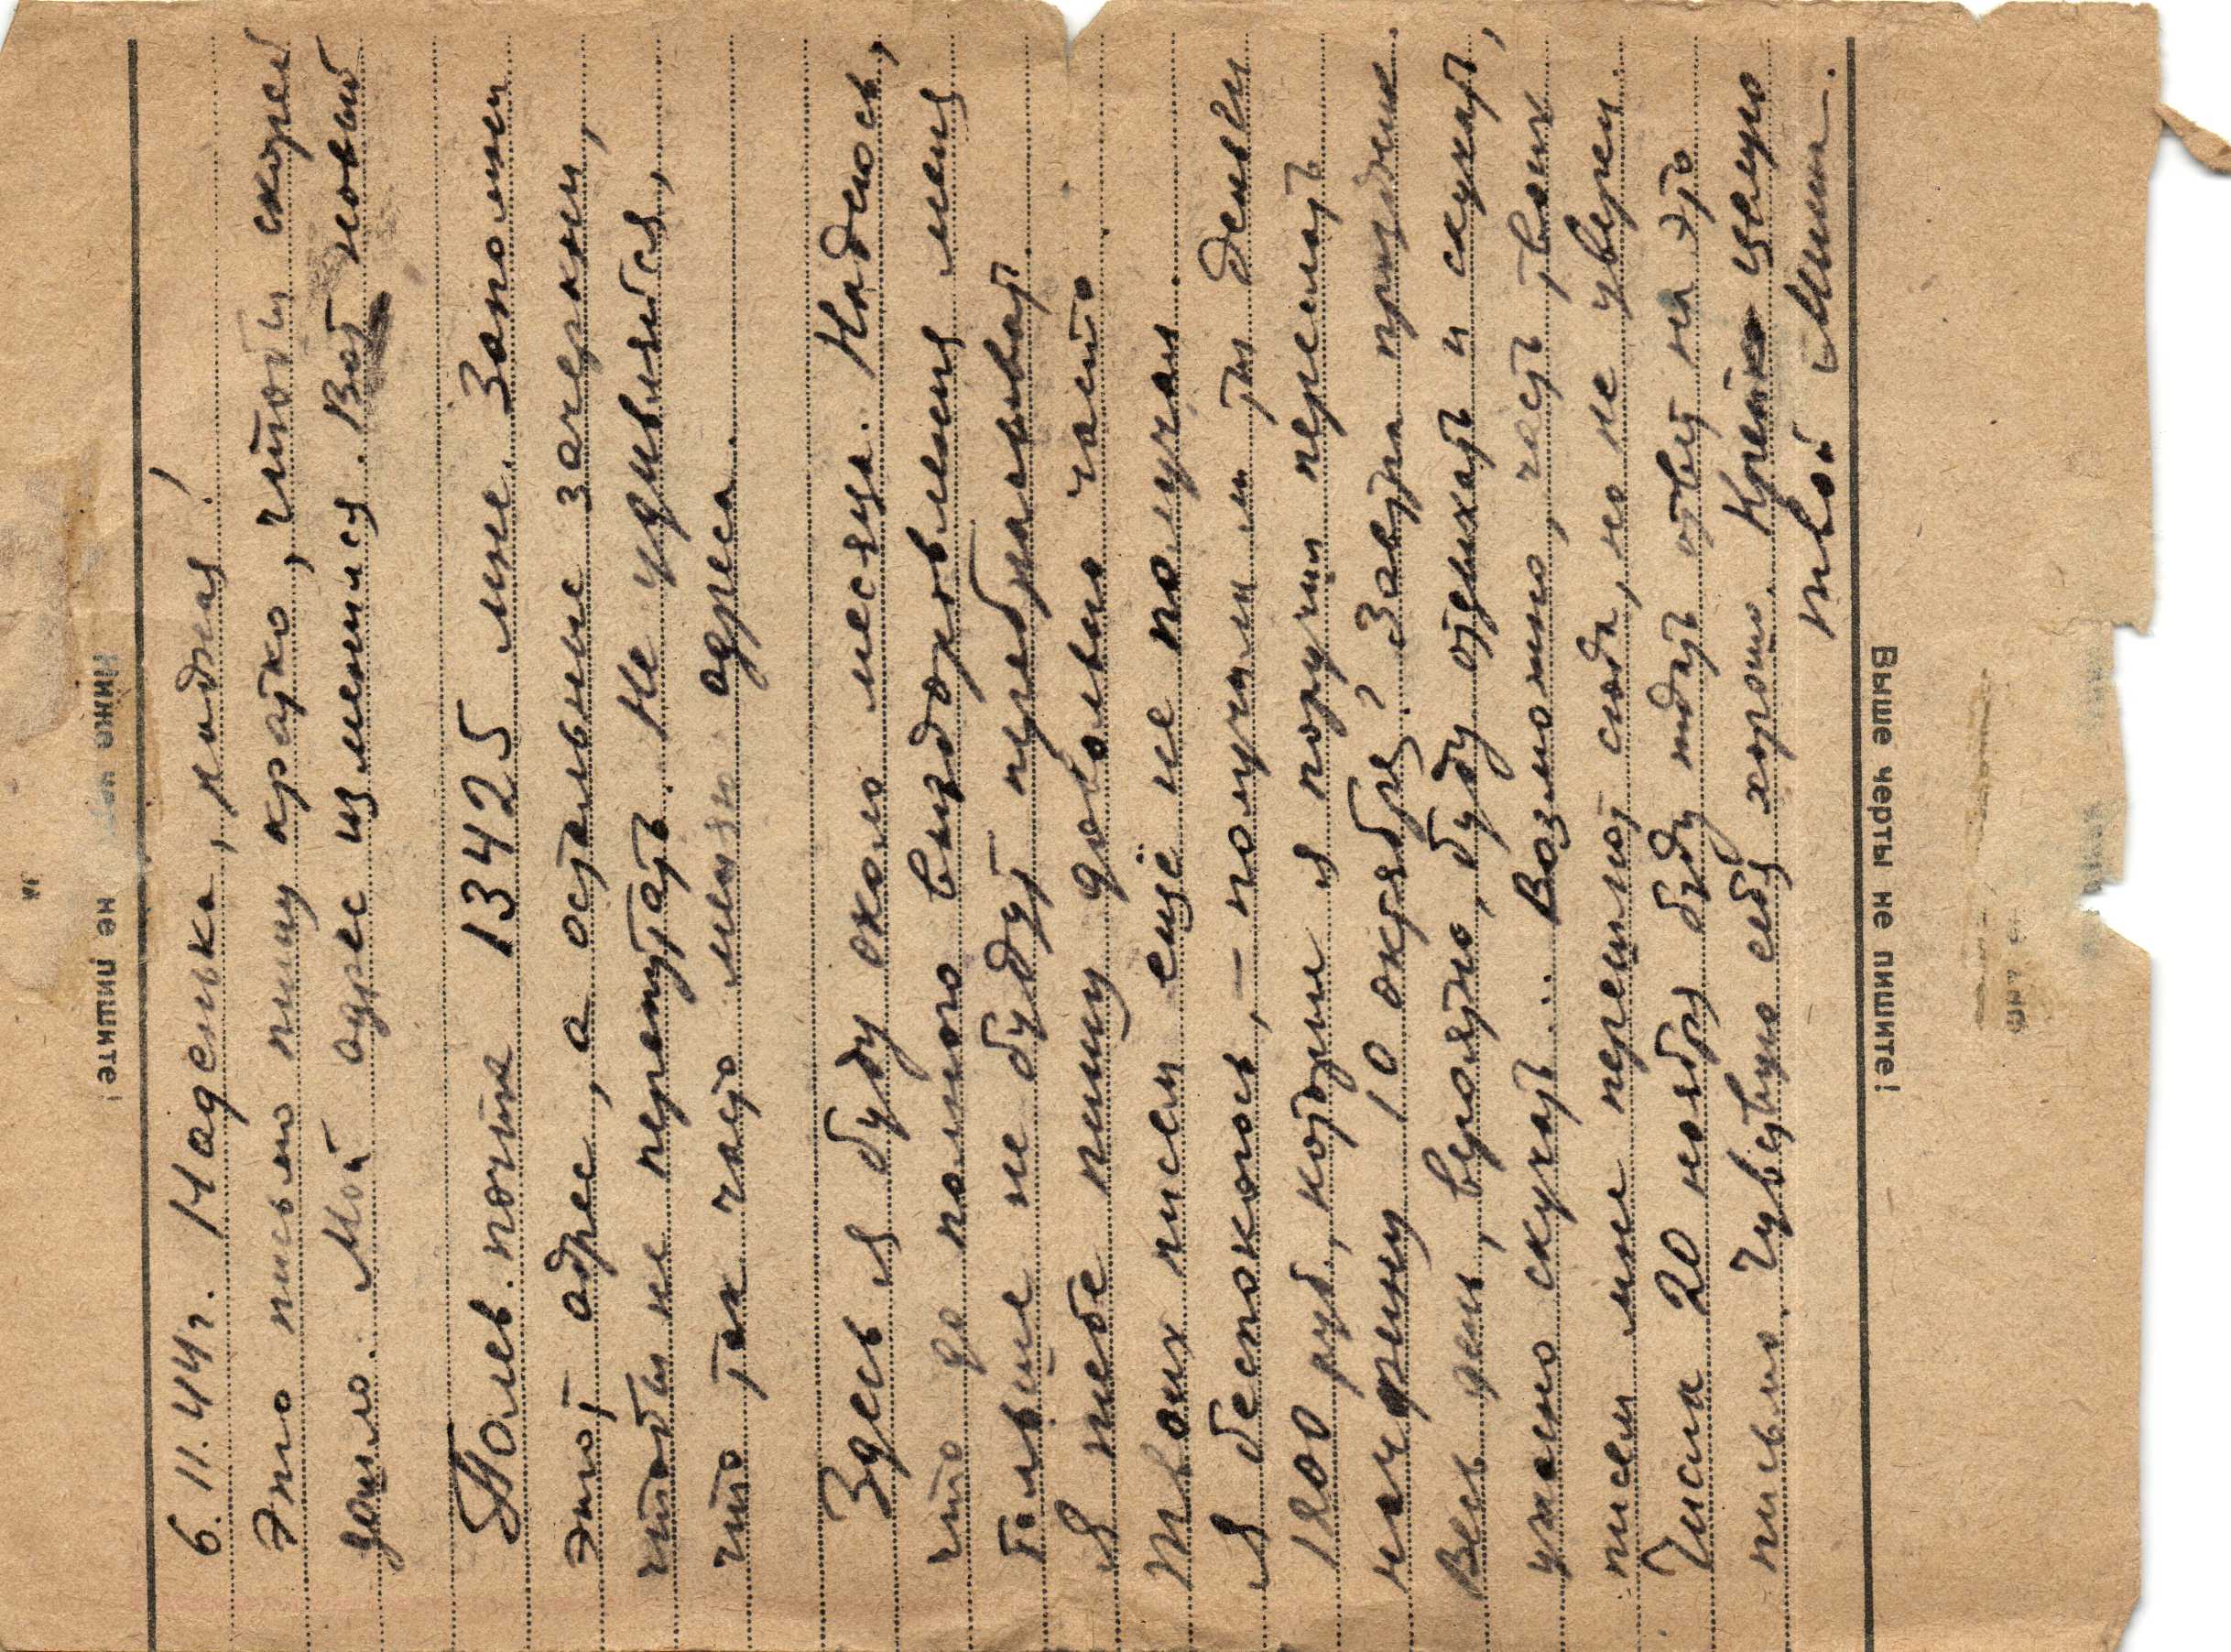 Ниже че не пишите!
6.11.44 г. Наденька, родная!
Это письмо пишу кратко, чтобы скорей
дошло. Мой адрес изменился. Вот новый
Полев. почта 13425 мне. Запомни
этот адрес, а остальные зачеркни,
чтобы не перепутать. Не удивляйся,
что так часто меняю адреса.
Здесь я буду около месяца. Надеюсь,
что до полного выздоровления меня
больше не будут перебрасывать.
Я тебе пишу довольно часто
твоих писем ещё не получал.
Я беспокоюсь, – получила ли ты деньги
1200 руб, которые я поручил переслать
10 октября? Завтра праздник.
Весь день, вероятно, буду отдыхать и скучать,
ужасно скучать... Возможно, часть твоих
писем мне перешлют сюда, но не уверен.
Числа 20 ноября буду ждать ответ на это
письмо. Чувствую себя хорошо. Крепко целую
твой Миша.
Выше черты не пишите!